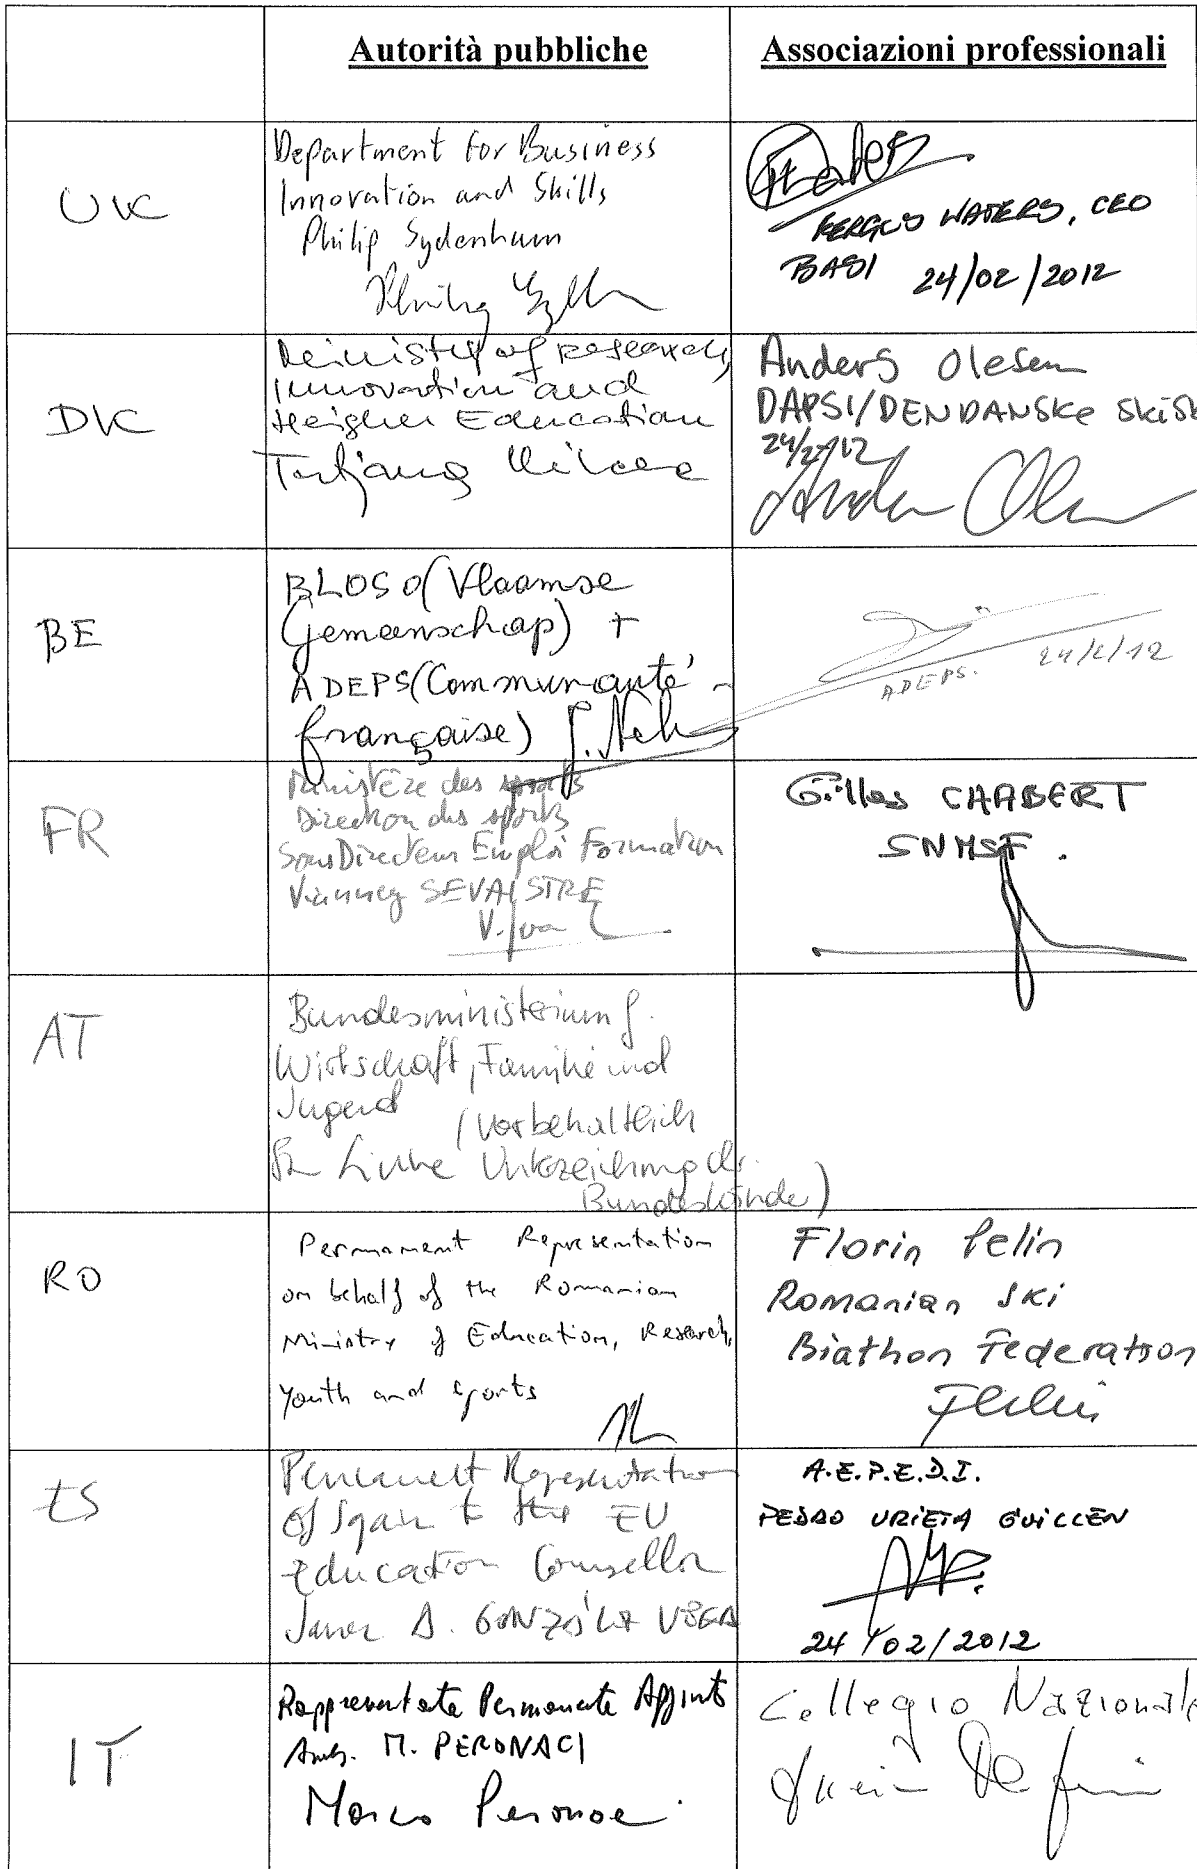 Autorità pubbliche
Associazioni professionali
UK
Department for Business
Innovation and Skills
Philip Sydenham
FERGUS WATERS, CEO
BASI 24/02/2012
DK
Ministry of Research,
Innovation and
Higher Education
Anders Olesen
DAPSI/DEN DANSKE Skisk
24/2/12
BE
BLOSO (Vlaamse
Gemeenschap) +
ADEPS (Communauté
française)
ADEPS. 24/2/12
FR
Ministère des sports
Direction des sports
Sous Directeur Emploi Formation
Vianney SEVAISTRE
Gilles CHABERT
SNMSF.
AT
Bundesministerium f.
Wirtschaft, Familie und
Jugend (vorbehaltlich
Unterzeichnung d.
Bundesländer)
RO
Permanent Representation
on behalf of the Romanian
Ministry of Education, Research,
Youth and sports
Florin Pelin
Romanian Ski
Biathon Federation
ES
Permanent Representation
of Spain to the EU
Education Counsellor
GONZÁLEZ VEGA
A.E.P.E.D.I.
PEDRO URIETA GUILLEN
24/02/2012
IT
Rappresentante Permanente Aggiunto
Amb. M. PERONACI
Marco Peronaci
Collegio Nazionale